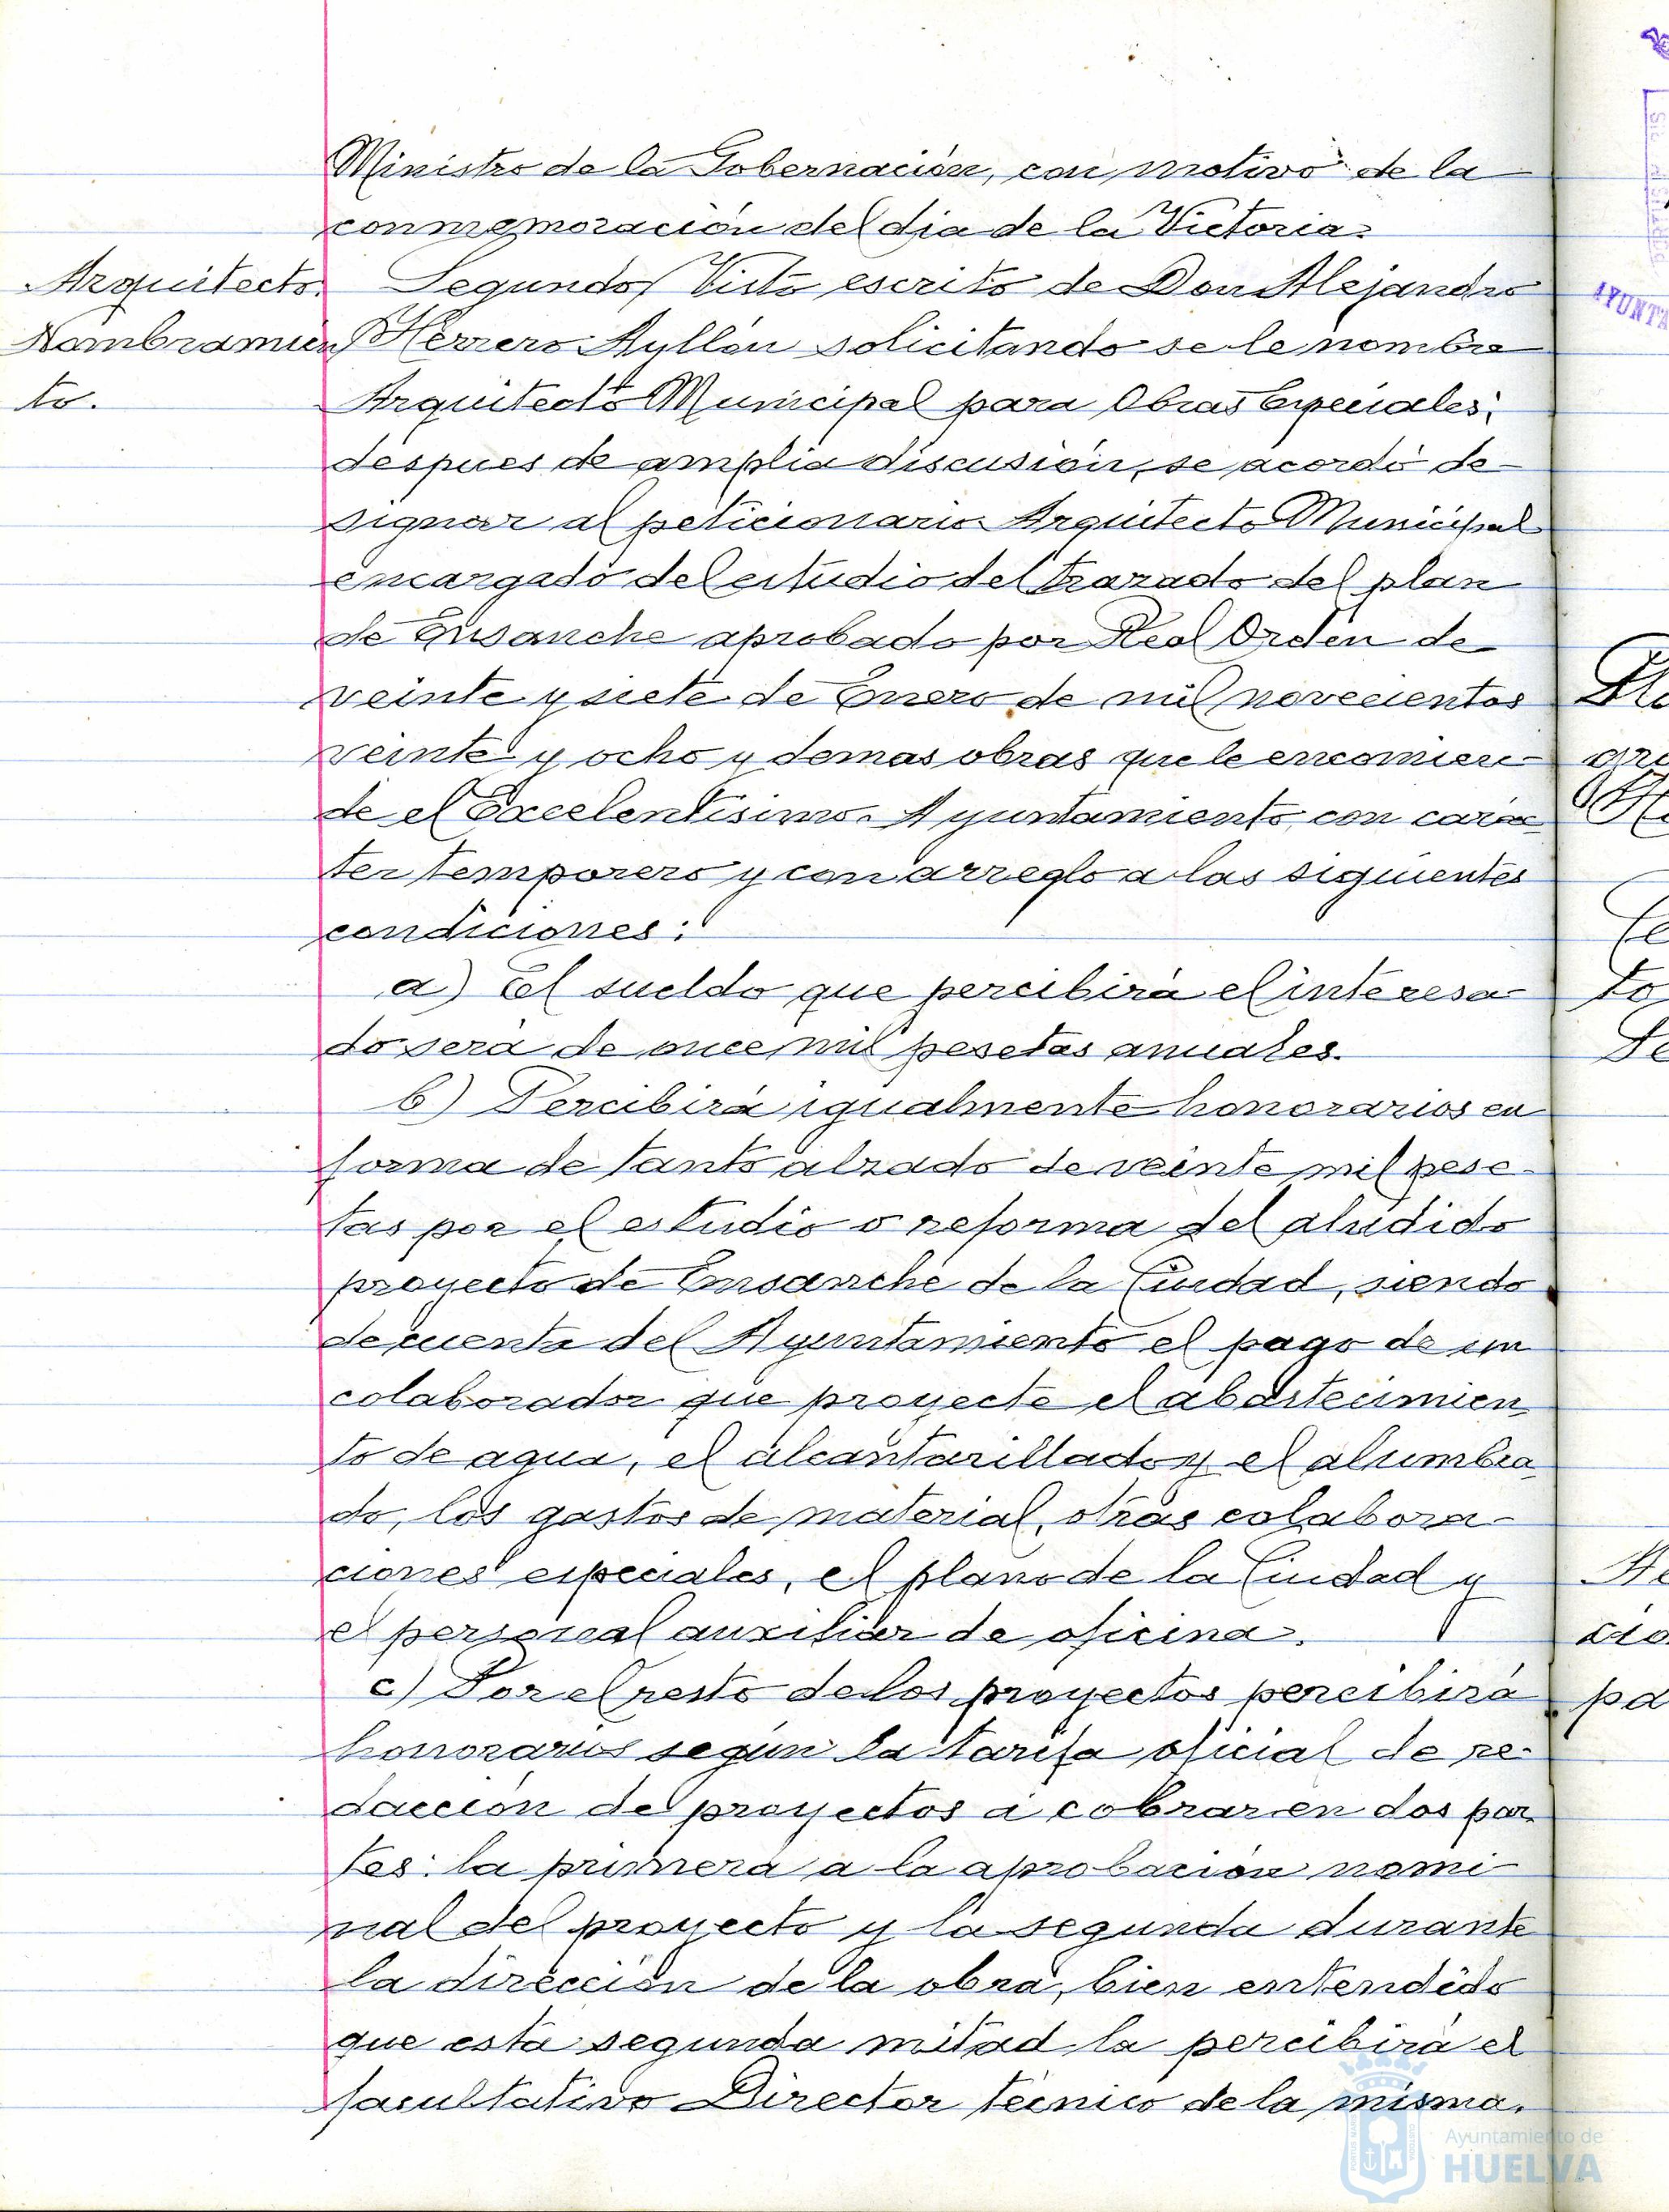 Ministro de la Gobernación, con motivo de la
conmemoración del dia de la Victoria.
Arquitecto.
Nombramien
to.
Segundo/ Visto escrito de Don Alejandro
Herrero Ayllón solicitando se le nombre
Arquitecto Municipal para Obras Especiales;
despues de amplia discusión, se acordó de-
signar al peticionario Arquitecto Municipal
encargado del estudio del trazado del plan
de Ensanche aprobado por Real Orden de
veinte y siete de Enero de mil novecientos
veinte y ocho y demas obras que le encomien-
de el Excelentísimo Ayuntamiento, con carac
ter temporero y con arreglo a las siguientes
condiciones:
a) El sueldo que percibirá el interesa-
do será de once mil pesetas anuales.
b) Percibirá igualmente honorarios en
forma de tanto alzado de veinte mil pese-
tas por el estudio o reforma del aludido
proyecto de Ensanche de la Ciudad, siendo
de cuenta del Ayuntamiento el pago de un
colaborador que proyecte el abastecimien
to de agua, el alcantarillado y el alumbra
do, los gastos de material, otras colabora-
ciones especiales, el plano de la Ciudad y
el personal auxiliar de oficina.
c) Por el resto de los proyectos percibirá
honorarios según la tarifa oficial de re-
dacción de proyectos a cobrar en dos par
tes: la primera a la aprobación nomi-
nal del proyecto y la segunda durante
la dirección de la obra, bien entendido
que esta segunda mitad la percibirá el
facultativo Director técnico de la misma.
AYUNTA
Ayuntamiento de
HUELVA